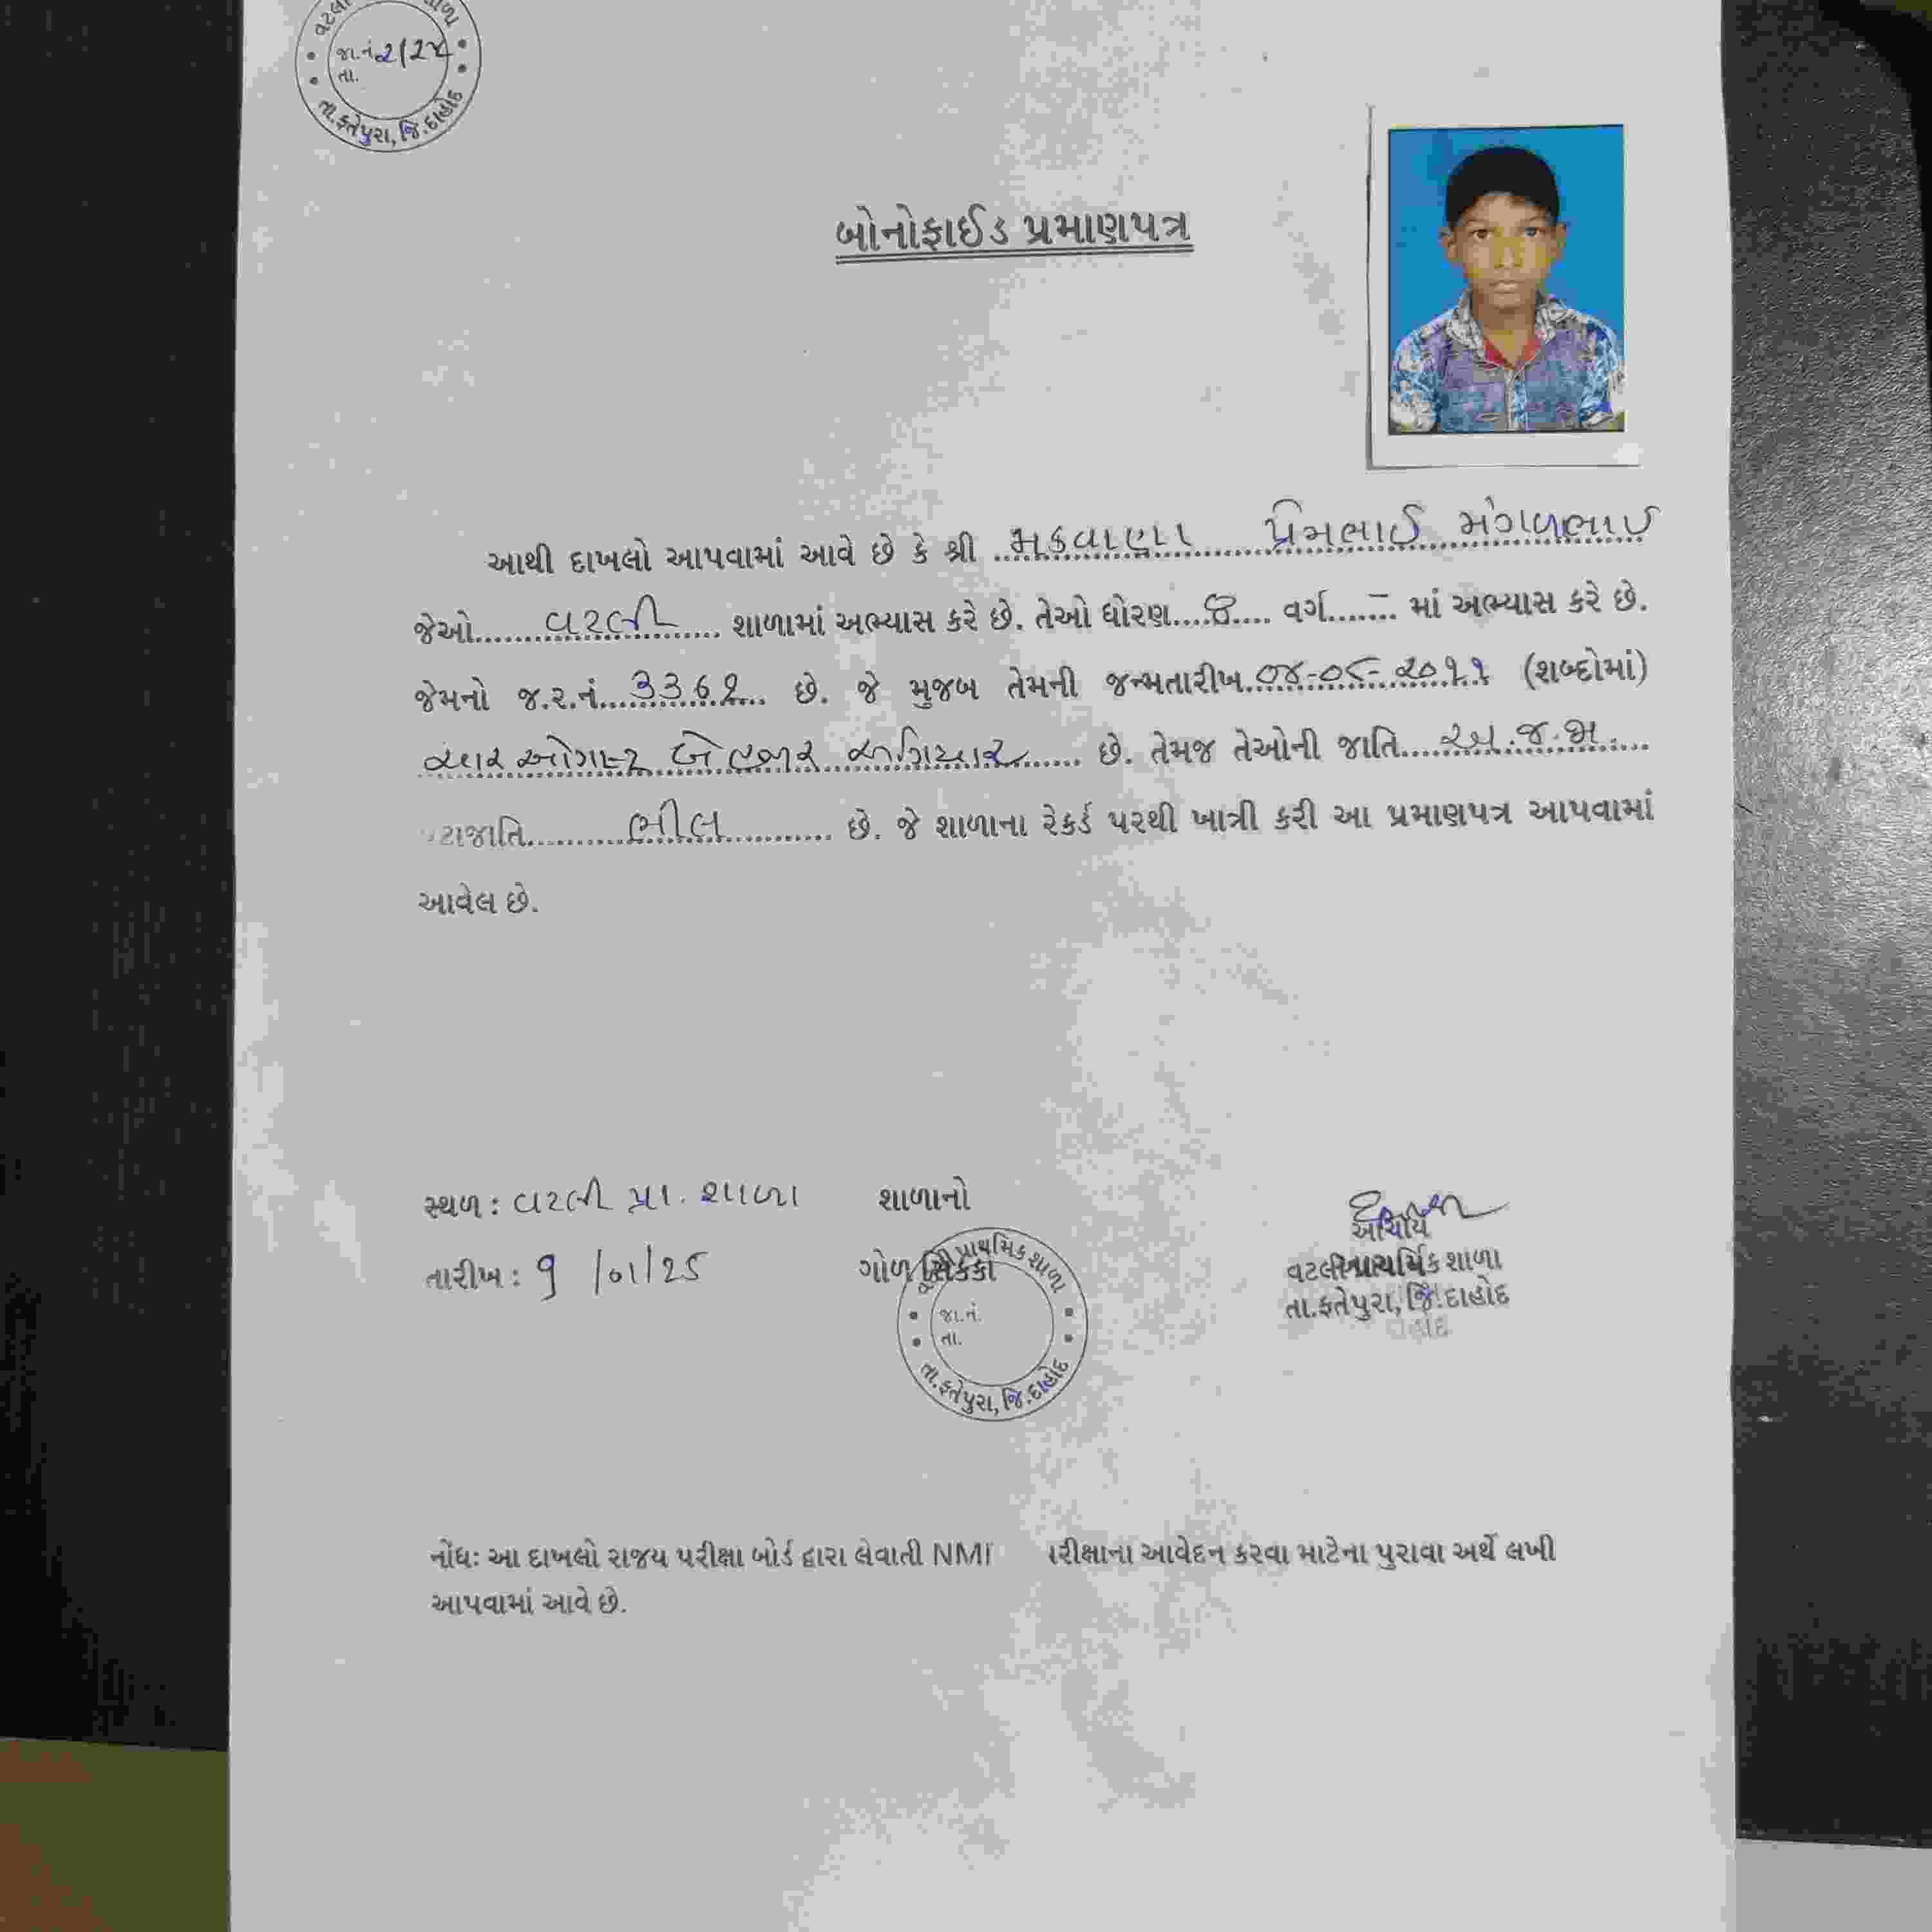 જા.નં.2/24
તા.
તા.ફતેપુરા, જિ.દાહોદ
બોનોફાઈડ પ્રમાણપત્ર
આથી દાખલો આપવામાં આવે છે કે શ્રી મકવાણા પ્રેમભાઈ મંગળભાઈ
જેઓ વટલી શાળામાં અભ્યાસ કરે છે. તેઓ ધોરણ 8 વર્ગ - માં અભ્યાસ કરે છે.
જેમનો જ.ર.નં. છે. જે મુજબ તેમની જન્મતારીખ (શબ્દોમાં)
ચાર ઓગષ્ટ બે હજાર અગિયાર છે. તેમજ તેઓની જાતિ અ.જ.જા.
ભીલ છે. જે શાળાના રેકર્ડ પરથી ખાત્રી કરી આ પ્રમાણપત્ર આપવામાં
આવેલ છે.
સ્થળ : વટલી પ્રા. શાળા શાળાનો
તારીખ : 9/01/25 ગોળ સિક્કો
પ્રાથમિક શાળા
જા.નં.
તા.
તા.ફતેપુરા, જિ.દાહોદ
આચાર્ય
વટલી પ્રાથમિક શાળા
તા.ફતેપુરા, જિ.દાહોદ
નોંધઃ આ દાખલો રાજય પરીક્ષા બોર્ડ દ્વારા લેવાતી આવેદન કરવા માટેના પુરાવા અર્થે લખી
આપવામાં આવે છે.